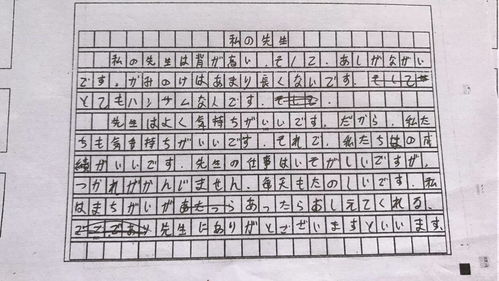 私の先生
私の先生は背があい．そして、あしがながい
です。かみのけはあまり長くないです．
とてもハンサムなんです．
先生はよく気持ちがいいです．だから、私た
ちも気持ちがいいです．それで、私たちはの成
績がいいです．先生の仕事はいそがしいですが、
つかれがかんじません、毎天もたのしいです．私
はまちがいがあったらあしえてくれる、
先生にありがとございますといいます．